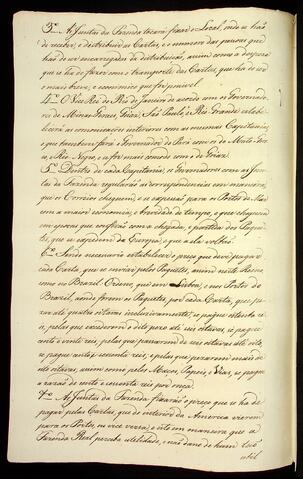 3º A Juntas da Fazenda tocará fixar o Local, onde se hão
de receber, e distribuir as Cartas, e o numero das pessoas que
hão de ser encarregadas da distribuição, assim como a despeza
que se ha de fazer com o transporte das Cartas, que ha de ser
o mais breve, e economico que for possivel.
4º O Vice Rei do Rio de Janeiro de acordo com os Governado-
res de Minas Geraes, Goiaz, São Paulo, e Rio Grande estabe-
lecerá as comunicações interiores com as mesmas Capitanias,
o que tambem fará o Governador do Pará com os de Mato-Gros-
so, e Rio Negro, e se for mais comodo com o de Goiaz.
5º Dentro de cada Capitania, os Governadores com as Jun-
tas da Fazenda regularão as correspondencias em maneira,
que os Correios cheguem, e se expessão para os Portos de Mar
com a maior economia, e brevidade de tempo, e que cheguem
em epocas que coincidão com a chegada, e partida dos Paque-
tes, que se expedirem da Europa, e que a ela voltão.
6º Sendo necessario estabelecer o preço que deve pagar
cada Carta, que se enviar pelos Paquetes, assim neste Reino
como no Brazil: Ordeno, que em Lisboa, e nos Portos do
Brazil, aonde forem os Paquetes, por cada Carta, que pe-
zar até quatro oitavas inclusivamente, se pague oitenta re-
is, pelas que excederem d'este pezo até seis oitavas, se pague
cento e vinte reis, pelas que passarem de seis oitavas até oito,
se pague cento e sessenta reis, e pelas que pezarem mais de
oito oitavas, assim como pelos Massos, Papeis, e Vias, se pague
a razão de cento e sessenta reis por onça.
7º As Juntas da Fazenda fixarão o preço que se ha de
pagar pelas Cartas, que do interior da America vierem
para os Portos, ou vice versa, e isto em maneira que a
Fazenda Real perceba utilidade, e não dano de hum tão
util